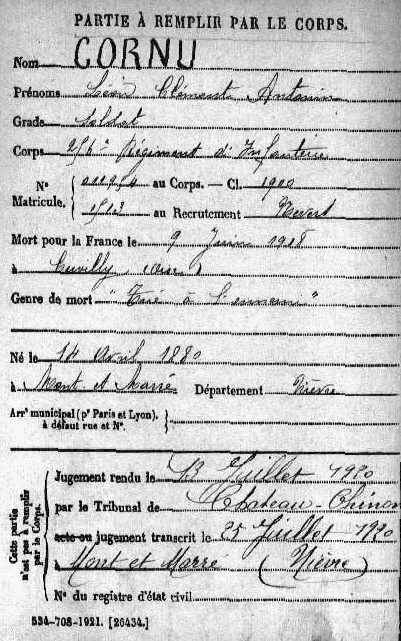 PARTIE À REMPLIR PAR LE CORPS.
Nom CORNU
Prénoms Léon Clément Antonin
Grade Soldat
Corps Régiment d'Infanterie
N° Matricule. au Corps. — Cl. 1900
au Recrutement Nevers
Mort pour la France le 9 Juin 1918
à Cuvilly (Oise)
Genre de mort "Tué à l'ennemi"
Né le 14 Avril 1880
à Mont et Marré Département Nièvre
Arr' municipal (p' Paris et Lyon),
à défaut rue et N°.
Cette partie n'est pas à remplir par le Corps.
Jugement rendu le 13 Juillet 1920
par le Tribunal de Chateau-Chinon
acte ou jugement transcrit le 25 Juillet 1920
à Mont et Marré (Nièvre)
N° du registre d'état civil
534-708-1921. [26434.]